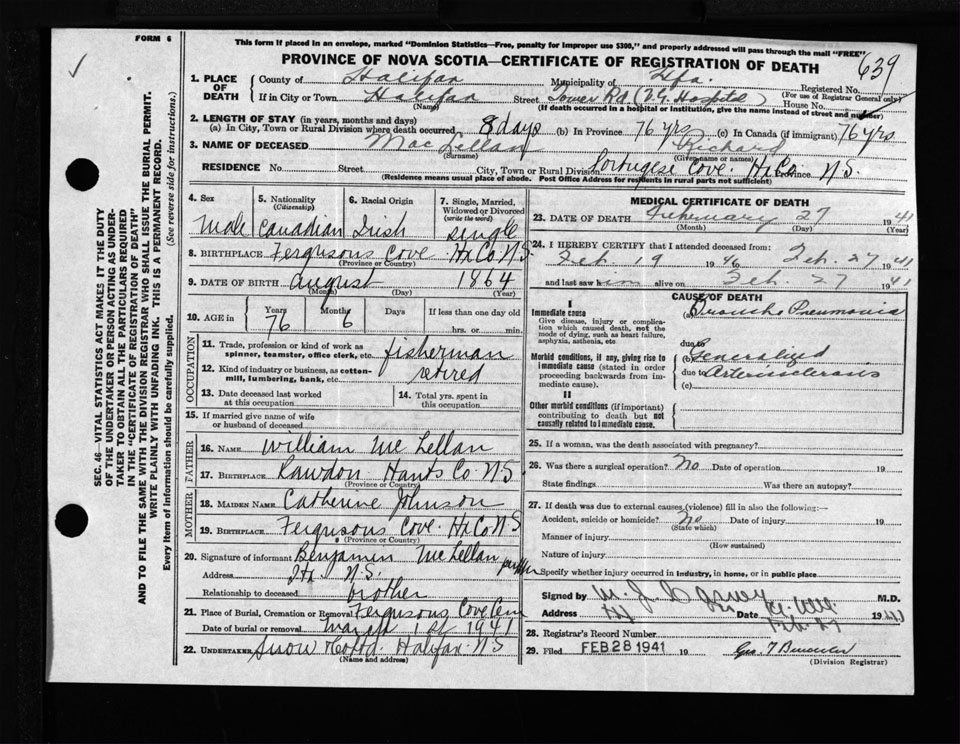 FORM 6
This form if placed in an envelope, marked "Dominion Statistics—Free, penalty for improper use $300," and properly addressed will pass through the mail "FREE"
639
PROVINCE OF NOVA SCOTIA—CERTIFICATE OF REGISTRATION OF DEATH
SEC. 46—VITAL STATISTICS ACT MAKES IT THE DUTY
OF THE UNDERTAKER OR PERSON ACTING AS UNDER-
TAKER TO OBTAIN ALL THE PARTICULARS REQUIRED
IN THE "CERTIFICATE OF REGISTRATION OF DEATH"
AND TO FILE THE SAME WITH THE DIVISION REGISTRAR WHO SHALL ISSUE THE BURIAL PERMIT.
WRITE PLAINLY WITH UNFADING INK. THIS IS A PERMANENT RECORD.
Every item of information should be carefully supplied. (See reverse side for instructions.)
1. PLACE OF DEATH
County of Halifax Municipality of Hfx. Registered No.
(For use of Registrar General only)
If in City or Town Halifax Street Tower Rd (V.G. Hospital) House No.
(Name) (If death occurred in a hospital or institution, give the name instead of street and number)
2. LENGTH OF STAY (in years, months and days)
(a) In City, Town or Rural Division where death occurred 8 days (b) In Province 76 yrs (c) In Canada (if immigrant) 76 yrs
3. NAME OF DECEASED MacLellan Richard
(Surname) (Given name or names)
RESIDENCE No. Street City, Town or Rural Division Portugese Cove. Hx Co. Province N.S.
(Residence means usual place of abode. Post Office Address for residents in rural parts not sufficient)
4. Sex 5. Nationality (Citizenship) 6. Racial Origin 7. Single, Married, Widowed or Divorced (write the word)
Male Canadian Irish single
8. BIRTHPLACE Fergusons Cove Hx Co N.S.
(Province or Country)
9. DATE OF BIRTH August 1864
(Month) (Day) (Year)
10. AGE in Years Months Days If less than one day old
76 6 hrs. or min.
OCCUPATION
11. Trade, profession or kind of work as spinner, teamster, office clerk, etc. fisherman
12. Kind of industry or business, as cotton-mill, lumbering, bank, etc. retired
13. Date deceased last worked at this occupation
14. Total yrs. spent in this occupation
15. If married give name of wife or husband of deceased
FATHER
16. NAME William McLellan
17. BIRTHPLACE Rawdon Hants Co N S
(Province or Country)
MOTHER
18. MAIDEN NAME Catherine Johnson
19. BIRTHPLACE Fergusons Cove. Hx Co N S
(Province or Country)
20. Signature of informant Benjamin McLellan
Address Hx N.S.
Relationship to deceased brother
21. Place of Burial, Cremation or Removal Fergusons Cove Cem
Date of burial or removal March 1st 1941
22. UNDERTAKER Snow & Co Ltd. Halifax N S
(Name and address)
MEDICAL CERTIFICATE OF DEATH
23. DATE OF DEATH February 27 1941
(Month) (Day) (Year)
24. I HEREBY CERTIFY that I attended deceased from:
Feb. 19 19 to Feb. 27 1941
and last saw him alive on Feb. 27 1941
CAUSE OF DEATH
I
Immediate cause
Give disease, injury or complication which caused death, not the mode of dying, such as heart failure, asphyxia, asthenia, etc.
(a) Broncho Pneumonia
due to
Morbid conditions, if any, giving rise to immediate cause (stated in order proceeding backwards from immediate cause).
(b) Generalized
due to Arteriosclerosis
(c)
II
Other morbid conditions (if important) contributing to death but not causally related to immediate cause.
25. If a woman, was the death associated with pregnancy?
26. Was there a surgical operation? No Date of operation 19
State findings Was there an autopsy?
27. If death was due to external causes (violence) fill in also the following:—
Accident, suicide or homicide? no Date of injury 19
Manner of injury
(How sustained)
Nature of injury
Specify whether injury occurred in industry, in home, or in public place
Signed by M.D.
Address Date Feb. 27 1941
28. Registrar's Record Number
29. Filed FEB 28 1941 19
(Division Registrar)